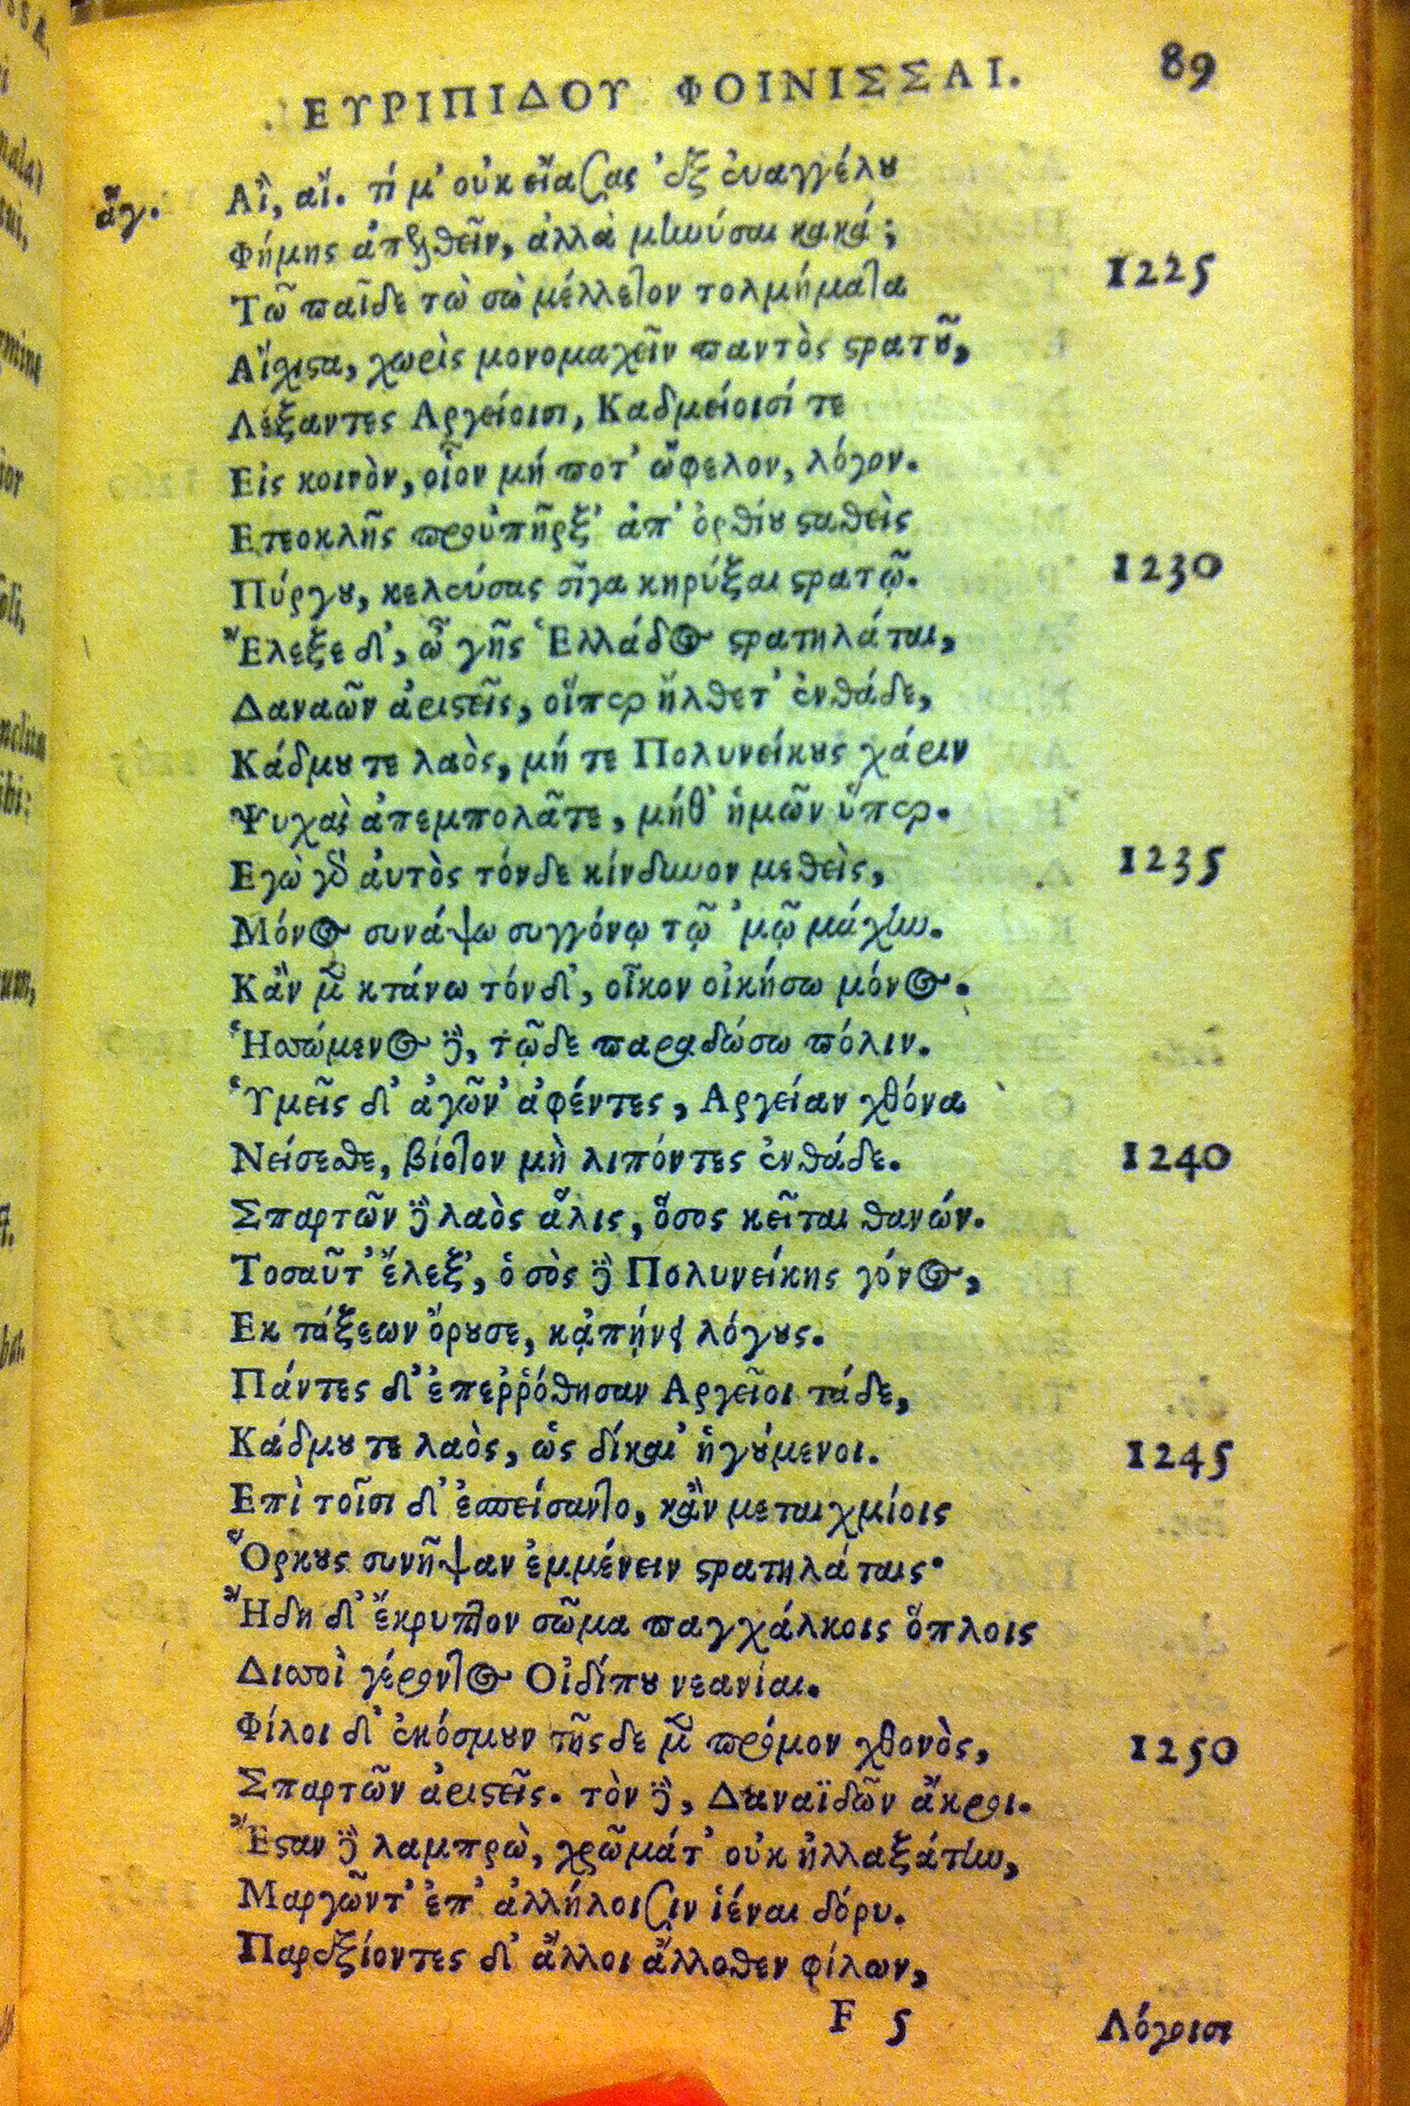 ΕΥΡΙΠΙΔΟΥ ΦΟΙΝΙΣΣΑΙ. 89
ἄγ. Αἲ, αἴ. τί μ' οὐκ εἴασας 'ἐξ ἐυαγγέλου
Φήμης ἀπελθεῖν, ἀλλὰ μηνύσαι κακά;
Τὼ παῖδε τὼ σὼ μέλλετον τολμήματα 1225
Αἴχιστα, χωρὶς μονομαχεῖν παντὸς στρατοῦ,
Λέξαντες Αργείοισι, Καδμείοισί τε
Εἰς κοινὸν, οἷον μή ποτ' ὤφελον, λόγον.
Ετεοκλῆς προὐπῆρξ' ἀπ' ὀρθίου σταθεὶς
Πύργου, κελεύσας σῖγα κηρύξαι στρατῷ. 1230
Ἔλεξε δ', ὦ γῆς Ἑλλάδος στρατηλάται,
Δαναῶν ἀριστεῖς, οἵπερ ἤλθετ' ἐνθάδε,
Κάδμου τε λαὸς, μή τε Πολυνείκους χάριν
Ψυχὰς ἀπεμπολᾶτε, μήθ' ἡμῶν ὕπερ.
Εγὼ γὸ ἀυτὸς τόνδε κίνδυνον μεθεὶς, 1235
Μόνος συνάψω συγγόνῳ τῷ 'μῷ μάχην.
Κἂν μὲν κτάνω τόνδ', οἶκον οἰκήσω μόνος.
Ἡσσώμενος δὲ, τῷδε παραδώσω πόλιν.
Ὑμεῖς δ' ἀγῶν' ἀφέντες, Αργείαν χθόνα
Νείσεσθε, βίοτον μὴ λιπόντες ἐνθάδε. 1240
Σπαρτῶν δὲ λαὸς ἅλις, ὅσος κεῖται θανών.
Τοσαῦτ' ἔλεξ', ὁ σὸς δὲ Πολυνείκης γόνος,
Εκ τάξεων ὄρουσε, κᾀπῄνει λόγους.
Πάντες δ' ἐπεῤῥόθησαν Αργεῖοι τάδε,
Κάδμου τε λαὸς, ὡς δίκαι' ἡγούμενοι. 1245
Επὶ τοῖσι δ' ἐσπείσαντο, κἂν μεταιχμίοις
Ὅρκους συνῆψαν ἐμμένειν στρατηλάταις·
Ἤδη δ' ἔκρυπτον σῶμα παγχάλκοις ὅπλοις
Δισσοὶ γέροντος Οἰδίπου νεανίαι.
Φίλοι δ' ἐκόσμουν τῆςδε μὲν πρόμον χθονὸς, 1250
Σπαρτῶν ἀριστεῖς. τὸν δὲ, Δαναϊδῶν ἄκροι.
Ἔσταν δὲ λαμπρὼ, χρῶμάτ' οὐκ ἠλλαξάτην,
Μαργῶντ' ἐπ' ἀλλήλοισιν ἱέναι δόρυ.
Παρεξίοντες δ' ἄλλοι ἄλλοθεν φίλων,
F 5 Λόγοισι